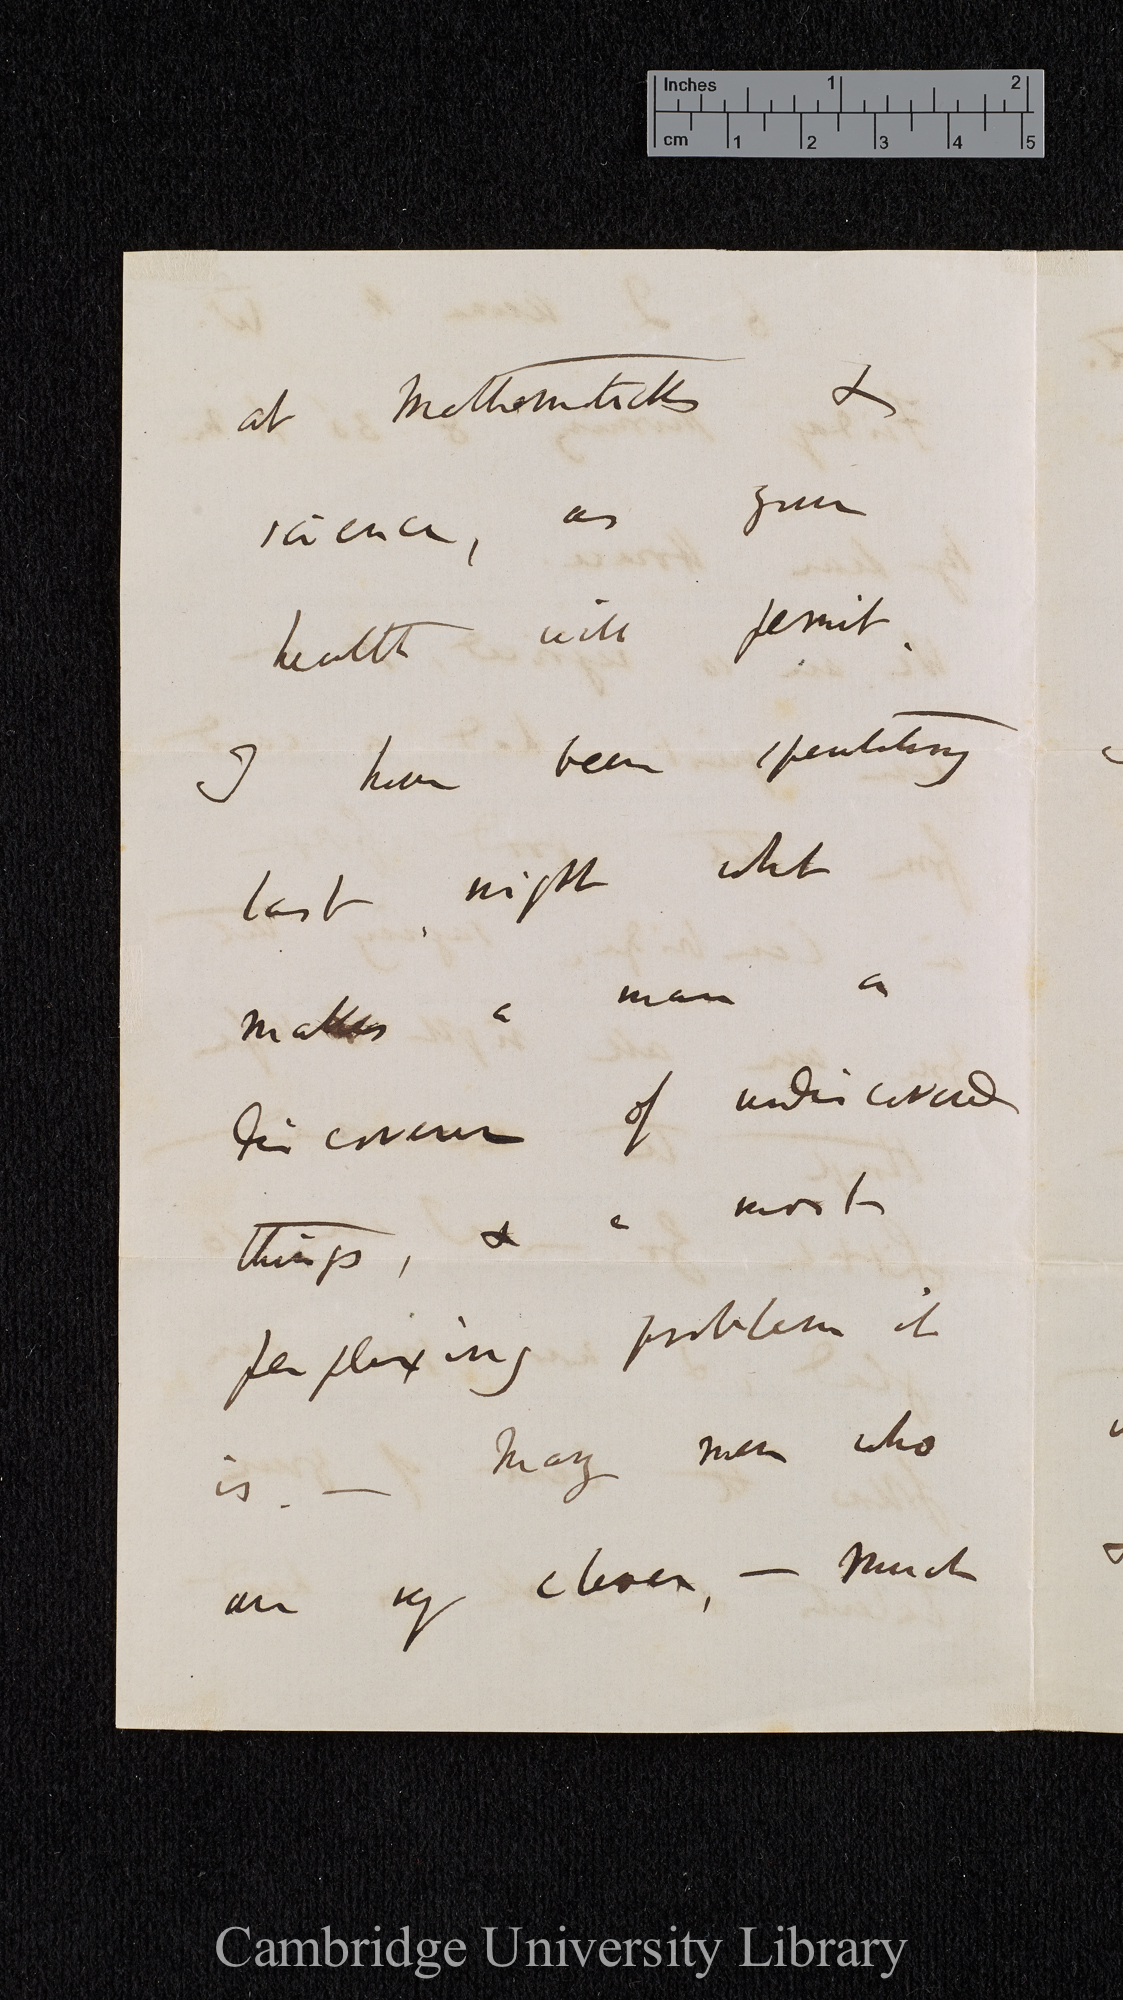 Inches 1 2
cm 1 2 3 4 5
at Mathematicks &
science, as your
health will permit.
I have been speculating
last night what
makes a man a
discoverer of undiscovered
things, & a most
perplexing problem it
is. — Many men who
are very clever, — much
Cambridge University Library